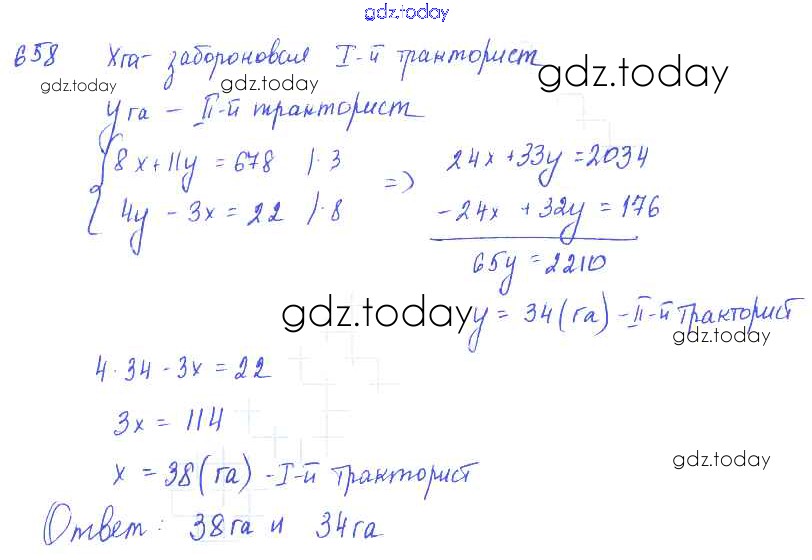 gdz.today
658 Xга- забороновал I-й тракторист
gdz.today gdz.today gdz.today
Yга – II-й тракторист
8x+11y = 678 |·3 => 24x+33y=2034
4y - 3x = 22 |·8 -24x +32y = 176
65y = 2210
gdz.today y = 34(га) -II-й тракторист
gdz.today
4·34 - 3x = 22
3x = 114
x = 38(га) -I-й тракторист
gdz.today
Ответ: 38га и 34га